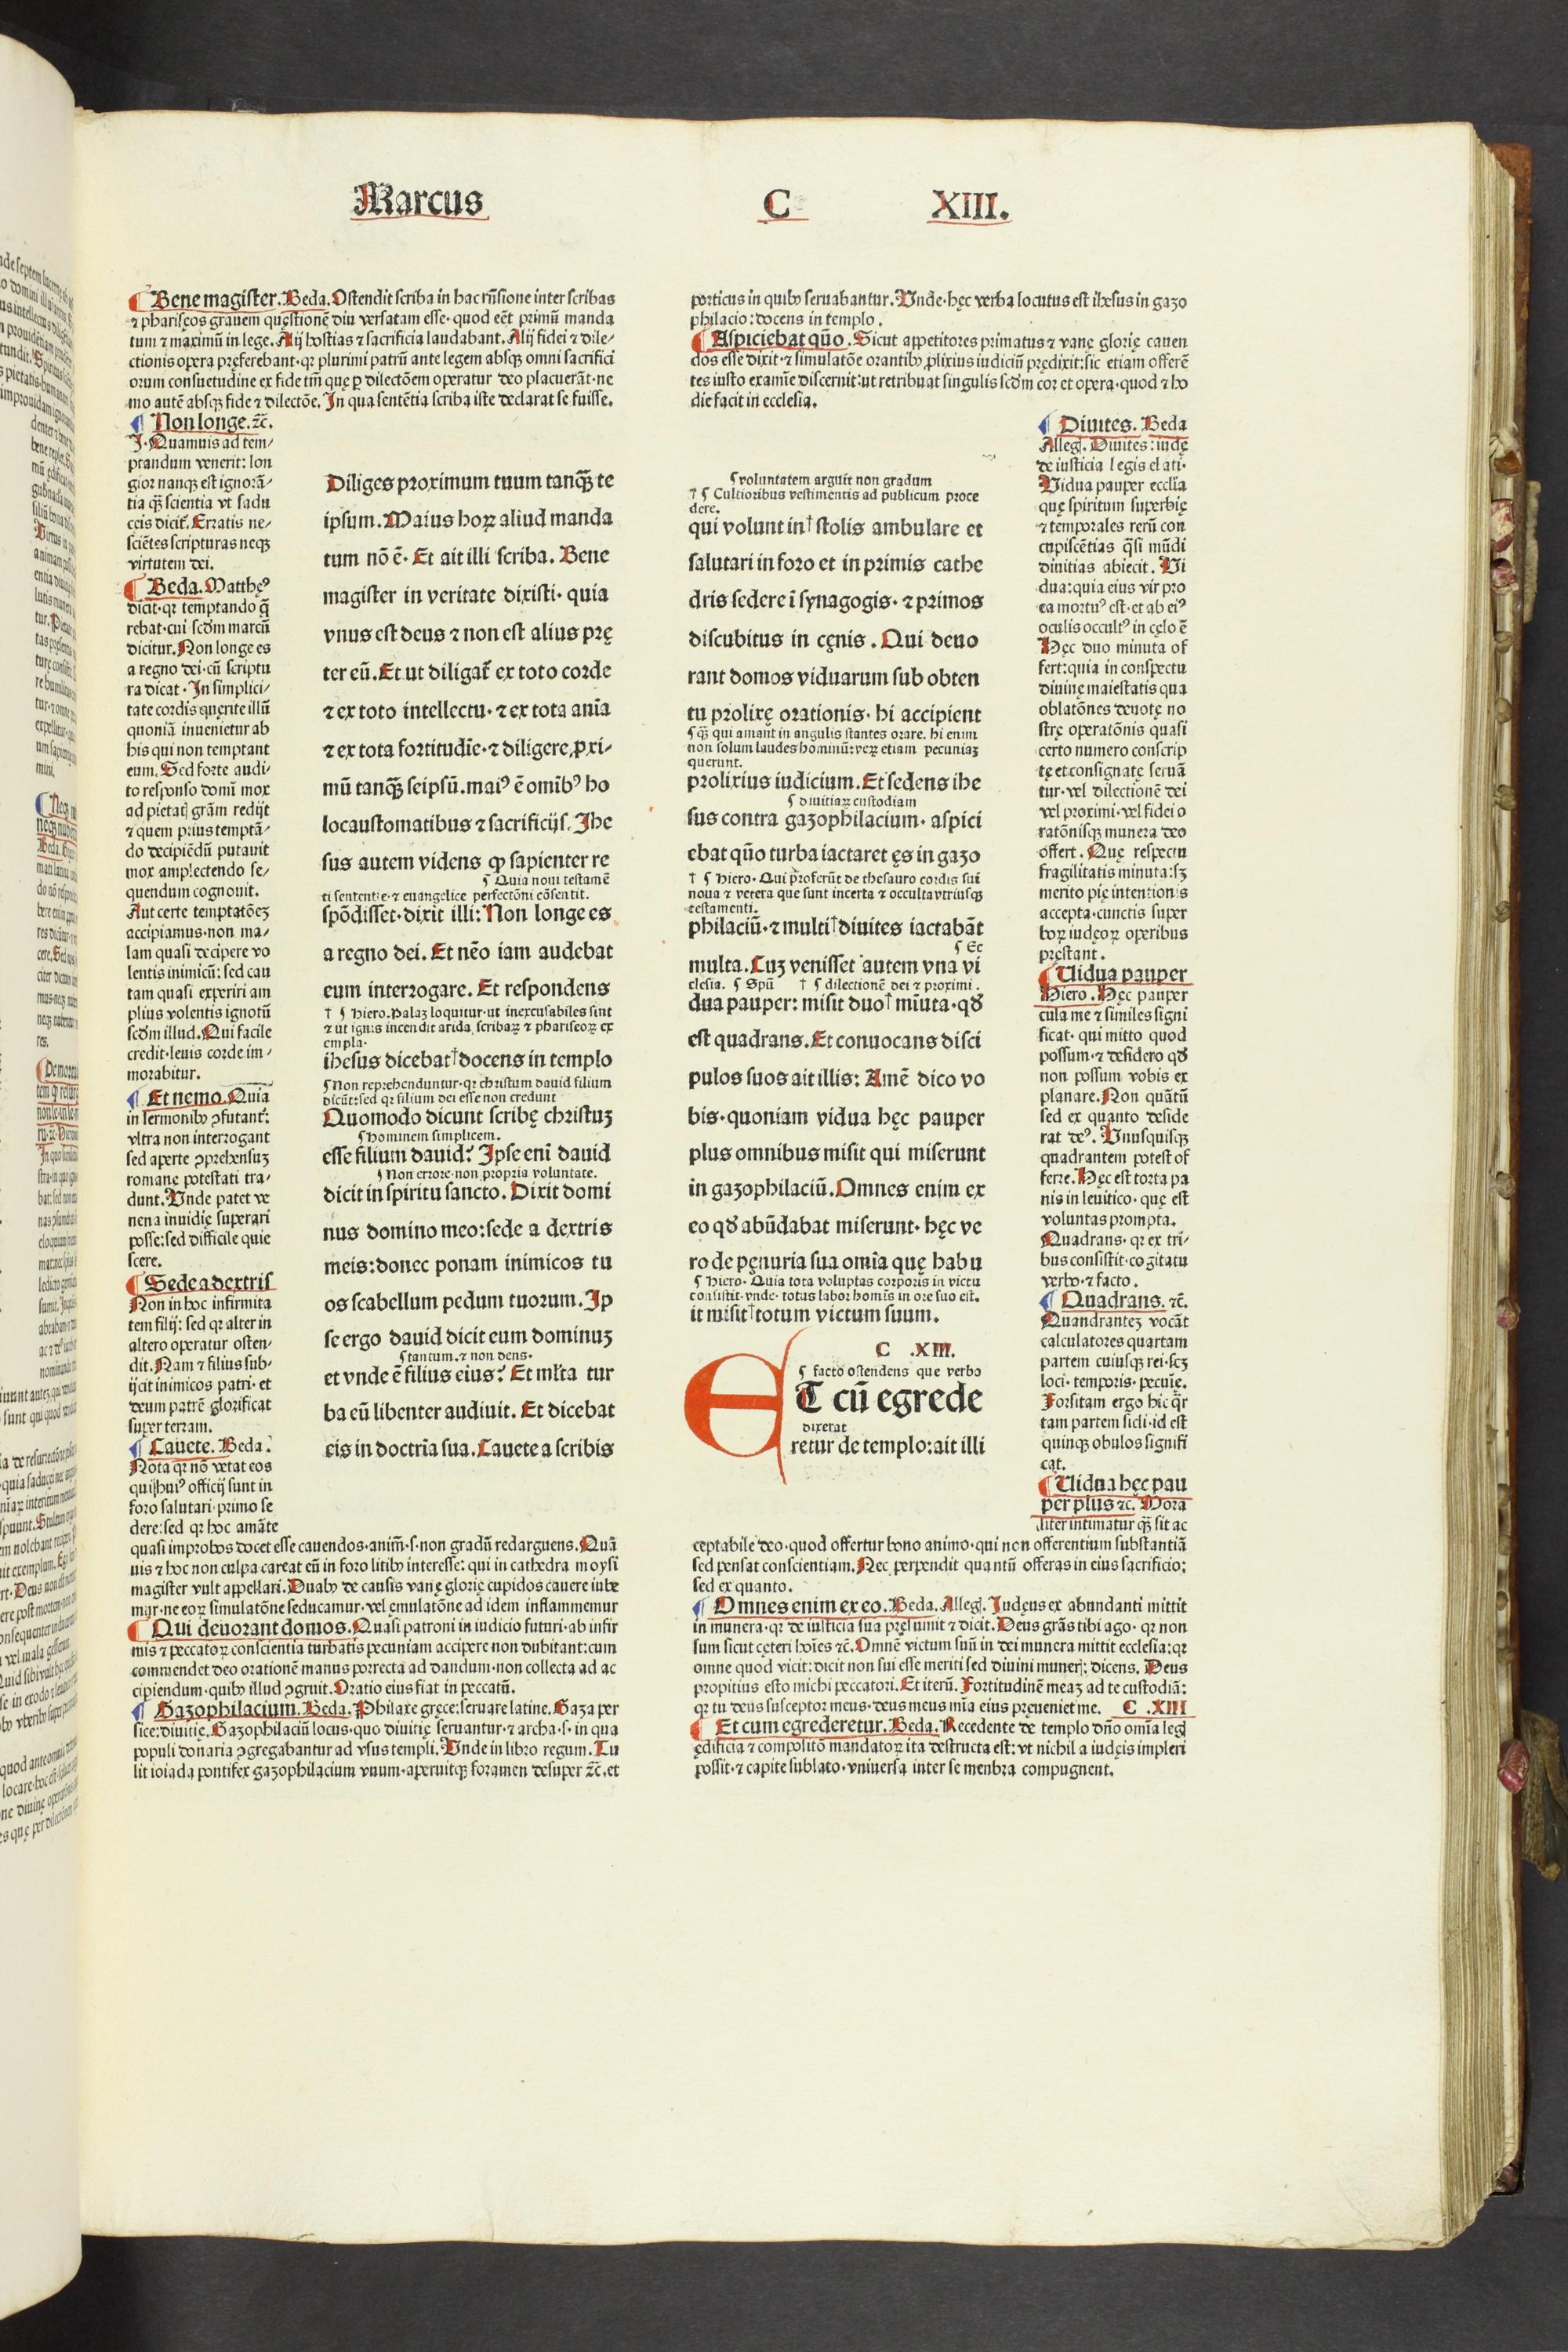 Marcus C XIII.
¶ Bene magister. Beda. Ostendit scriba in hac rñsione inter scribas
⁊ pharisęos grauem quęstionē diu versatam esse· quod eēt primū manda
tum ⁊ maximū in lege. Alij hostias ⁊ sacrificia laudabant. Alij fidei ⁊ dile⸗
ctionis opera pręferebant· qꝛ plurimi patrū ante legem absqꝫ omni sacrifici
orum consuetudine ex fide tm̄ quę ꝑ dilectōem operatur deo placuerāt· ne
mo autē absqꝫ fide ⁊ dilectōe. In qua sentētia scriba iste declarat se fuisse.
¶ Non longe. ⁊c̄.
J· Quamuis ad tem⸗
ptandum venerit: lon
gior nanqꝫ est ignorā⸗
tia qꝫ̄ scientia vt sadu
ceis dicit̄. Erratis ne⸗
sciētes scripturas neqꝫ
virtutem dei.
¶ Beda. Matthęꝰ
dicit· qꝛ temptando q̄
rebat· cui scd̄m marcū
dicitur. Non longe es
a regno dei· cū scriptu
ra dicat· In simplici⸗
tate cordis quęrite illū
quoniā inuenietur ab
his qui non temptant
eum. Sed forte audi⸗
to responso domī mox
ad pietatꝭ grām redijt
⁊ quem prius temptā⸗
do decipiēdū putauit
mox amplectendo se⸗
quendum cognouit.
Aut certe temptatōeꝫ
accipiamus· non ma⸗
lam quasi decipere vo
lentis inimicū: sed cau
tam quasi experiri am
plius volentis ignotū
scd̄m illud. Qui facile
credit· leuis corde im⸗
morabitur.
¶ Et nemo. Quia
in sermonibꝰ ꝯfutant̄:
vltra non interrogant
sed aperte ꝯprehensuꝫ
romanę potestati tra⸗
dunt. Unde patet ve
nena inuidię superari
posse: sed difficile quie
scere.
¶ Sede a dextris
Non in hoc infirmita
tem filij: sed qꝛ alter in
altero operatur osten⸗
dit. Nam ⁊ filius sub⸗
ijcit inimicos patri· et
deum patrē glorificat
super terram.
¶ Cauete. Beda.
Nota qꝛ nō vetat eos
qui huiꝰ officij sunt in
foro salutari· primo se
dere: sed qꝛ hoc amāte
Diliges proximum tuum tanqꝫ̄ te
ipsum. Maius hoꝝ aliud manda
tum nō ē· Et ait illi scriba. Bene
magister in veritate dixisti· quia
vnus est deus ⁊ non est alius prę
ter eū. Et ut diligat̄ ex toto corde
⁊ ex toto intellectu· ⁊ ex tota aīa
⁊ ex tota fortitudīe· ⁊ diligere ꝓxi⸗
mū tanqꝫ̄ seipsū. maiꝰ ē omībꝰ ho
locaustomatibus ⁊ sacrificijs. Ihe
sus autem videns ꝙ sapienter re
¶ Quia noui testamē
ti sententię· ⁊ euangelice perfectōni cōsentit.
spōdisset· dixit illi: Non longe es
a regno dei. Et nēo iam audebat
eum interrogare. Et respondens
† ¶ Hiero. Palaꝫ loquitur· ut inexcusabiles sint
⁊ ut ignis incendit arida scribaꝝ ⁊ phariseoꝝ ex
empla·
ihesus dicebat† docens in templo
¶ Non reprehenduntur· qꝛ christum dauid filium
dicūt: sed qꝛ filium dei esse non credunt
Quomodo dicunt scribę christuꝫ
¶ hominem simplicem.
esse filium dauid? Ipse enī dauid
¶ Non errore· non propria voluntate.
dicit in spiritu sancto. Dixit domi
nus domino meo: sede a dextris
meis: donec ponam inimicos tu
os scabellum pedum tuorum. Ip
se ergo dauid dicit eum dominuꝫ
¶ tantum. ⁊ non deus·
et vnde ē filius eius? Et ml̄ta tur
ba eū libenter audiuit. Et dicebat
eis in doctrīa sua. Cauete a scribis
quasi improbos docet esse cauendos· anim̄· s· non gradū redarguens. Quā
uis ⁊ hoc non culpa careat eū in foro litibꝰ interesse: qui in cathedra moysi
magister vult appellari. Duabꝰ de causis vanę glorię cupidos cauere iube
mur· ne eoꝝ simulatōne seducamur· vel ęmulatōne ad idem inflammemur
¶ Qui deuorant domos. Quasi patroni in iudicio futuri· ab infir
mis ⁊ peccatoꝝ conscientia turbatis pecuniam accipere non dubitant: cum
commendet deo orationē manus porrecta ad dandum· non collecta ad ac
cipiendum· quibꝰ illud ꝯgruit. Oratio eius fiat in peccatū.
¶ Gazophilacium. Beda. Philaxe gręce: seruare latine. Gaza per
sice: diuitię. Gazophilaciū locus· quo diuitię seruantur· ⁊ archa· s· in qua
populi donaria ꝯgregabantur ad vsus templi. Unde in libro regum. Tu
lit ioiada pontifex gazophilacium vnum· aperuitqꝫ foramen desuper ⁊c̄. et
porticus in quibꝰ seruabantur. Unde· hęc verba locutus est ihesus in gazo
philacio: docens in templo.
¶ Aspiciebat quō. Sicut appetitores primatus ⁊ vanę glorię cauen
dos esse dixit· ⁊ simulatōe orantibꝰ ꝓlixius iudiciū prędixit: sic etiam offerē
tes iusto examīe discernit: ut retribuat singulis scd̄m cor et opera· quod ⁊ ho
die facit in ecclesia.
¶ voluntatem arguit non gradum
† ¶ Cultioribus vestimentis ad publicum proce
dere.
qui volunt in† stolis ambulare et
salutari in foro et in primis cathe
dris sedere ī synagogis· ⁊ primos
discubitus in cęnis. Qui deuo
rant domos viduarum sub obten
tu prolixę orationis· hi accipient
¶ qꝫ̄ qui amant in angulis stantes orare. hi enim
non solum laudes hominū: veꝝ etiam pecuniaꝫ
querunt.
prolixius iudicium. Et sedens ihe
¶ diuitiaꝝ custodiam
sus contra gazophilacium· aspici
ebat quō turba iactaret ęs in gazo
† ¶ Hiero· Qui proferūt de thesauro cordis sui
noua ⁊ vetera que sunt incerta ⁊ occulta vtriusqꝫ
testamenti.
philaciū· ⁊ multi† diuites iactabāt
¶ Ec
multa. Cuꝫ venisset autem vna vi
clesia. ¶ Spū † ¶ dilectionē dei ⁊ proximi.
dua pauper: misit duo† mīuta· qd̄
est quadrans. Et conuocans disci
pulos suos ait illis: Amē dico vo
bis· quoniam vidua hęc pauper
plus omnibus misit qui miserunt
in gazophilaciū. Omnes enim ex
eo qd̄ abūdabat miserunt· hęc ve
ro de pęnuria sua omīa quę habu
¶ Hiero· Quia tota voluptas corporis in victu
consistit· vnde· totus labor homīs in ore suo est.
it misit† totum victum suum.
C .XIII.
¶ facto ostendens que verbo
ET cū egrede
dixerat
retur de templo: ait illi
¶ Diuites. Beda
Alleg. Diuites: iudę
de iusticia legis elati·
Uidua pauper ecclīa
quę spiritum superbię
⁊ temporales rerū con
cupiscētias q̄si mūdi
diuitias abiecit. Ui
dua: quia eius vir pro
ea mortuꝰ est· et ab eiꝰ
oculis occultꝰ in cęlo ē
Hęc duo minuta of
fert: quia in conspectu
diuinę maiestatis qua
oblatōnes deuotę no
strę operatōnis quasi
certo numero conscrip
tę et consignatę seruā
tur· vel dilectionē dei
vel proximi· vel fidei o
ratōnisqꝫ munera deo
offert. Quę respectu
fragilitatis minuta: sꝫ
merito pię intentionis
accepta· cunctis super
boꝝ iudęoꝝ operibus
pręstant.
¶ Uidua pauper
Hiero. Hęc pauper
cula me ⁊ similes signi
ficat· qui mitto quod
possum· ⁊ desidero qd̄
non possum vobis ex
planare. Non quātū
sed ex quanto deside
rat deꝰ. Unusquisqꝫ
quadrantem potest of
ferre. Hęc est torta pa
nis in leuitico· quę est
voluntas prompta.
Quadrans· qꝛ ex tri⸗
bus consistit· cogitatu
verbo· ⁊ facto.
¶ Quadrans. ⁊c̄.
Quandranteꝫ vocāt
calculatores quartam
partem cuiusqꝫ rei· scꝫ
loci· temporis· pecuīę.
Forsitam ergo hic q̄r
tam partem sicli· id est
quinqꝫ obulos signifi
cat.
¶ Uidua hęc pau
per plus ⁊c. Mora
liter intimatur qꝫ̄ sit ac
ceptabile deo· quod offertur bono animo· qui non offerentium substantiā
sed pensat conscientiam. Nec perpendit quantū offeras in eius sacrificio:
sed ex quanto.
¶ Omnes enim ex eo. Beda. Alleg. Judęus ex abundanti mittit
in munera· qꝛ de iusticia sua pręsumit ⁊ dicit. Deus grās tibi ago· qꝛ non
sum sicut cęteri hoīes ⁊c. Omnē victum suū in dei munera mittit ecclesia: qꝛ
omne quod vicit: dicit non sui esse meriti sed diuini munerꝭ: dicens. Deus
propitius esto michi peccatori. Et iterū. Fortitudinē meaꝫ ad te custodiā:
qꝛ tu deus susceptor meus· deus meus mīa eius pręueniet me. C .XIII
¶ Et cum egrederetur. Beda. Recedente de templo dn̄o omīa legꝭ
ędificia ⁊ compositō mandatoꝝ ita destructa est: vt nichil a iudęis impleri
possit· ⁊ capite sublato· vniuersa inter se menbra compugnent.